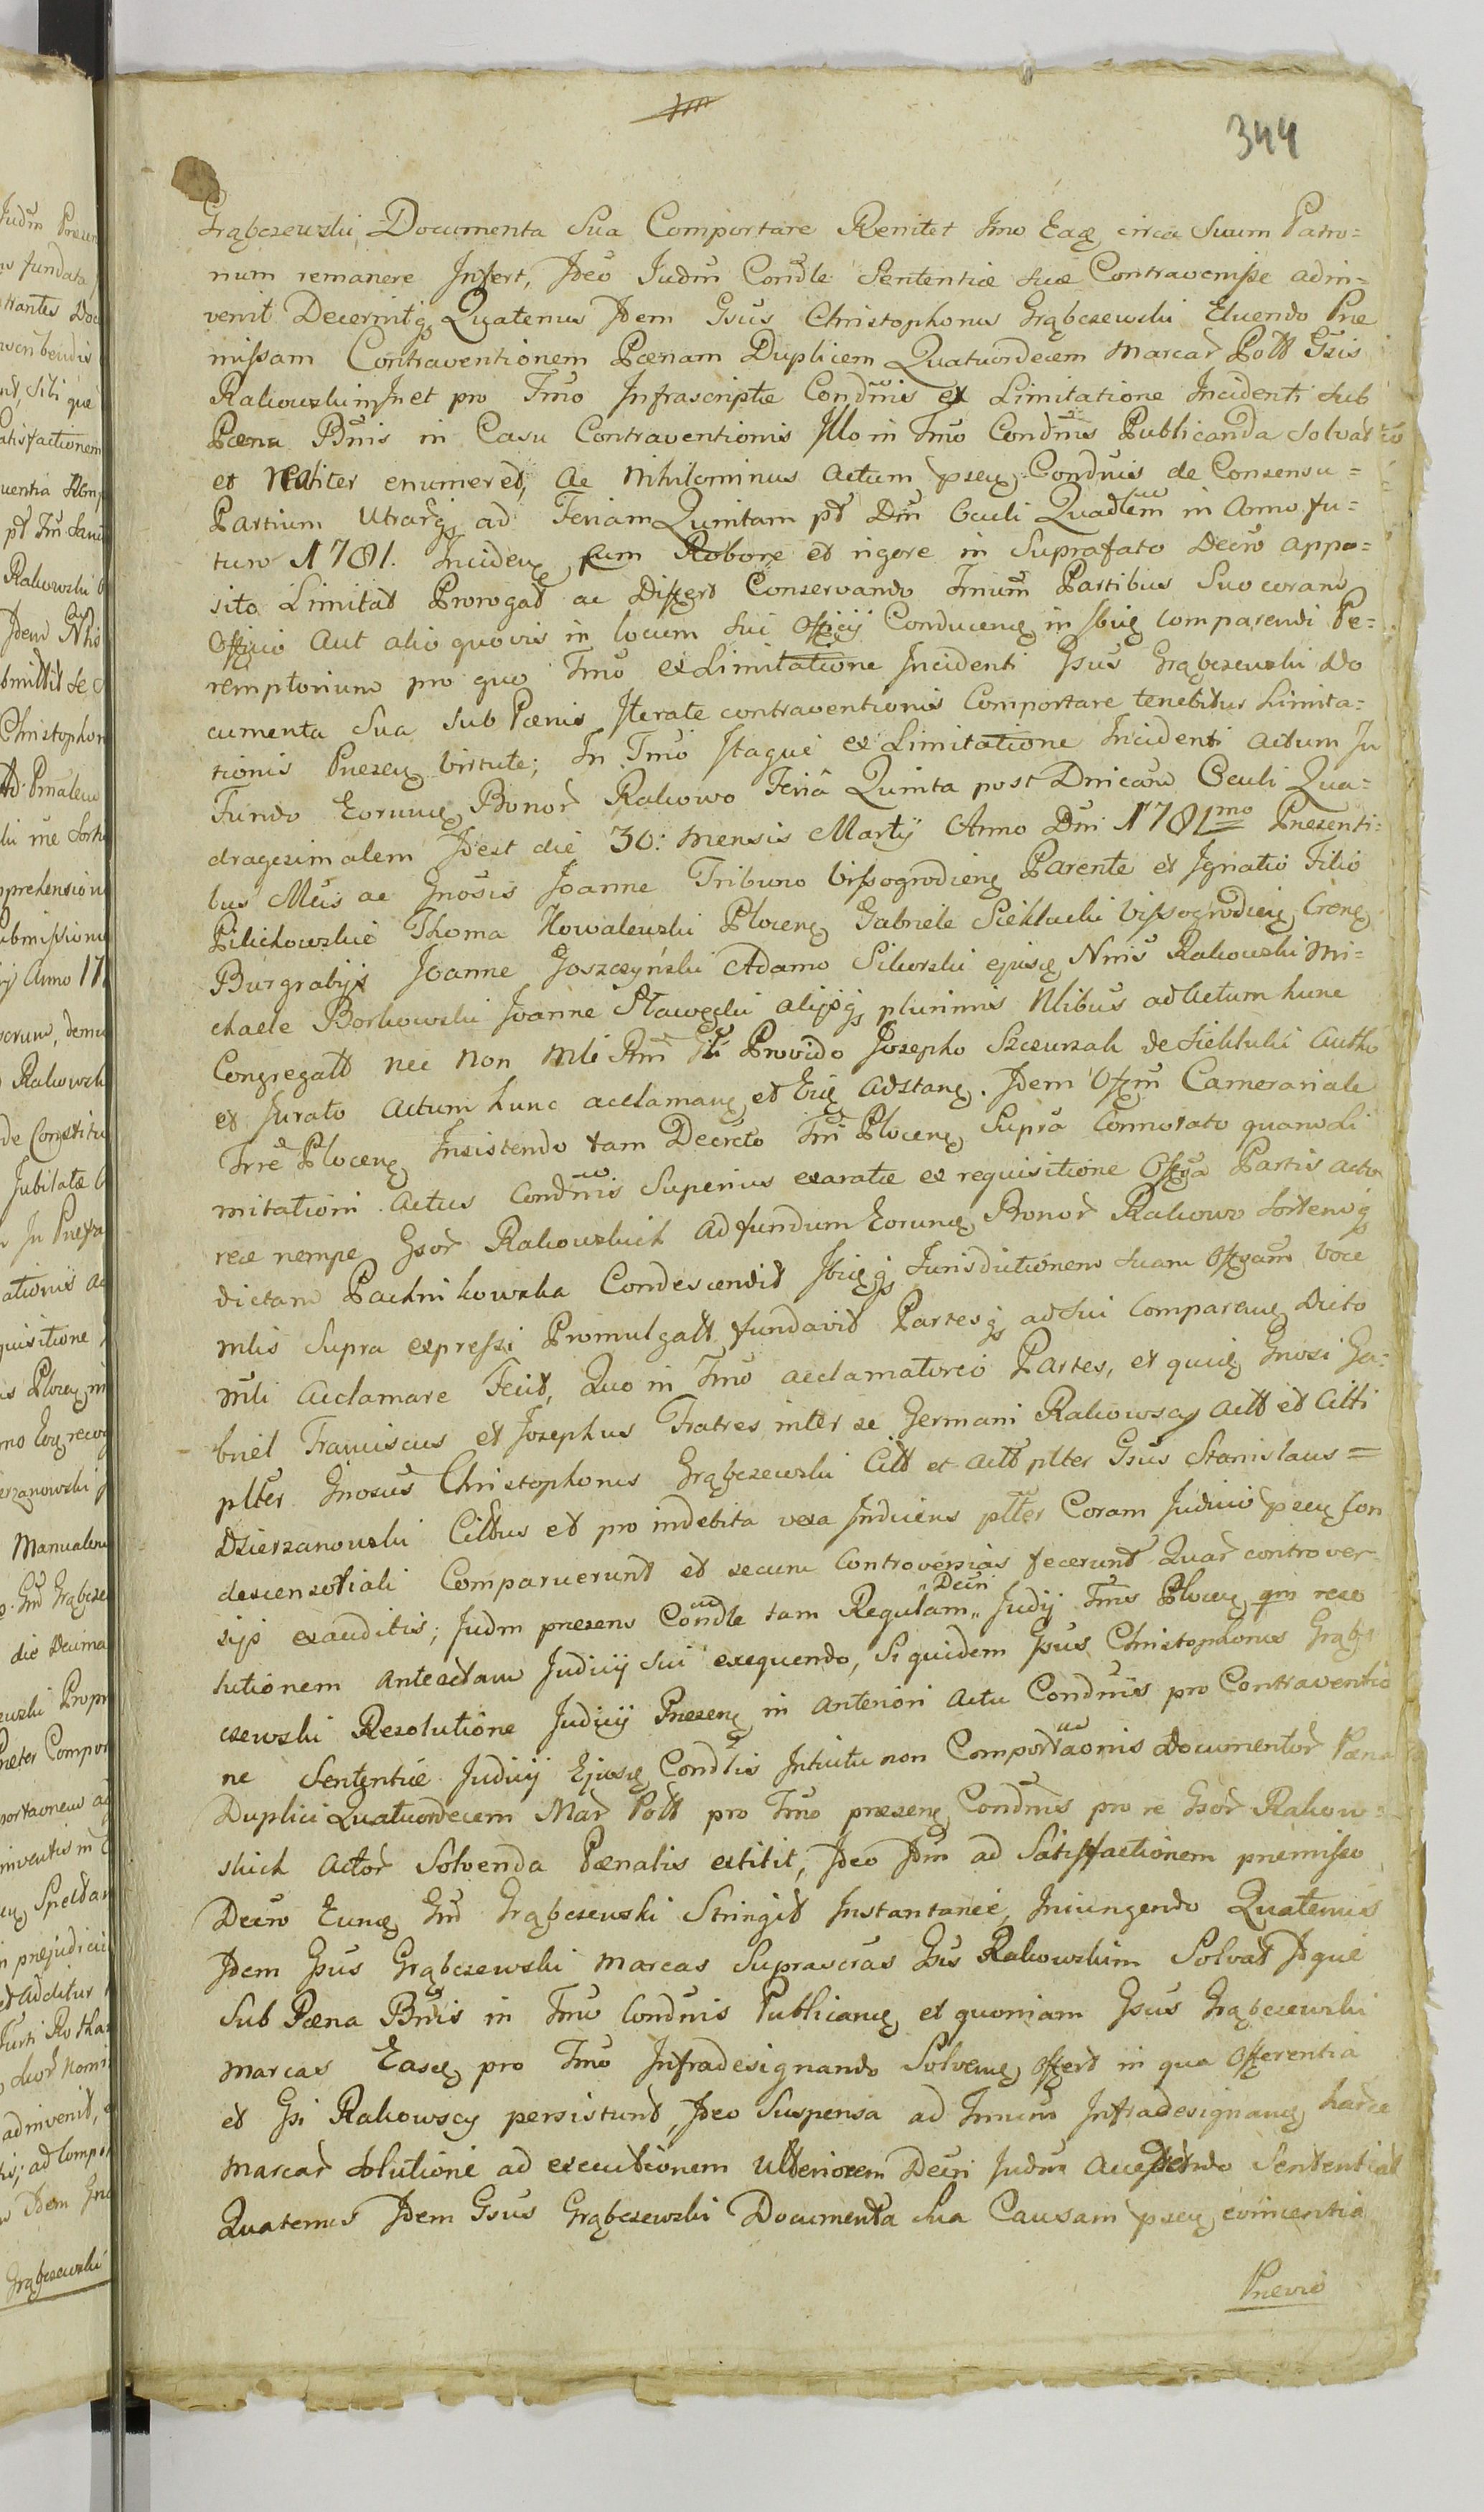 344
Grąbczewski Documenta Sua Comportare Renitet Imo Eaq circa Suum Patro=
num remanere Infert, Ideo Iudm Condle Sententiæ suæ Contravenisse adin=
venit Decernitq Quatenus Idem Gsus Christophorus Grąbczewski Eluendo Præ
missam Contraventionem Pænam Duplicem Quatuordecem Marcar Poll Gsis
Rakowskim In et pro Tmo Infrascriptæ Condnis ex Limitatione Incidenti sub
Pæna Bnis in Casu Contraventionis Illo in Tmo Condnis Publicanda Solvat
et realiter enumeret, ac nihilominus Actum psen Condnis de Consensu=
Partium Utrarq ad Feriam Quintam pt Dm Oculi Quadlem in Anno fu=
turo 1781. Inciden, cum Robore et rigore in Suprafato Decro appo=
sito Limitat Prorogat ac Differt Conservando Tmum Partibus Suo coram
Officio Aut alio quovis in locum sui Officij Conducen in Ibid comparendi Pe=
remptorium pro quo Tmo ex Limitatione Incidenti Gsus Grąbczewski Do
cumenta Sua sub Pænis Iteratæ contraventionis Comportare tenebitur Limita=
tionis Præsen virtute; In Tmo Itaque ex Limitatione Incidenti Actum In
Fundo Eorund Bonor Rakowo Feriâ Quinta post Dnicam Oculi Qua=
dragesimalem Idest die 30: Mensis Martij Anno Dni 1781mo Præsenti=
bus Meis ac Gnosis Joanne Tribuno Vissogrodien Parente et Ignatio Filio
Pilichowskie Thoma Kowalewski Plocen Gabriele Sieklucki Vissogrodien Cren
Burgrabijs Joanne Goszczyński Adamo Sikorski ejusd Nris Rakowski Mi=
chaele Borkowski Joanne Sławęcki alijsq plurimis Nlibus ad Actum hunc
Congregatt nec non Mli Provido Josepho Szczurzak de Sieklucki Autho
et Jurato Actum hunc acclaman et Ibid adstan. Idem Offm Camerariale
Trræ Plocen Insistendo tam Decreto Tri Plocen Supra Connotato quam Li
mitationi Actus Condnis Superius exaratæ ex requisitione Offsa Partis acto
reæ nempe Gsor Rakowskich ad fundum Eorund Bonor Rakowo sortemq
dictam Pachnikowska Condescendit Ibidq Jurisdictionem suam Offsam voce
Mlis Supra expressi Promulgatt fundavit Partesq ad sui Comparen dicto
Mli Acclamare Fecit, Quo in Tmo acclamatoreo Partes, et quid Gnosi Ga=
briel Franciscus et Josephus Fratres inter se Germani Rakowscy Actt et Citti
plter Gnosus Christophorus Grąbczewski Citt et Actt plter Gsus Stanislaus=
Dzierzanowski Cittus et pro indebita vexa Inducens plter Coram Judicio psen Con
descensoriali Comparuerunt et secum Controversias fecerunt Quar controver
sijs exauditis; Judm præsens Condle tam Regulam „Decri Judij Tris Plocen qm reso
lutionem Antectam Judicij sui exequendo, Siquidem Gsus Christophorus Grąb
czewski Resolutione Judicij Præsen in anteriori Actu Condnis pro Contraventio
ne Sententiæ Judicij Ejusd Condlis Intuitu non Comportaonis documentor Pæna
Duplici Quatuordecem Mar Poll pro Tmo præsen Condnis pro re Gsor Rakow=
skich Actor Solvenda Pænalis extitit, Ideo Idm ad Satisfactionem præmisso
Decro Eund Gm Grąbczewski Stringit Instantanee, Iniungendo Quatenus
Idem Gsus Grąbczewski Marcas Suprascras Gsis Rakowskim Solvat Idque
Sub Pæna Bnis in Tmo Condnis Publican et quoniam Gsus Grąbczewski
Marcas Easd pro Tmo Infradesignando Solven offert in qua Offerentia
et Gsi Rakowscy persistunt, Ideo Suspensa ad Tmum Infradesignan harce
Marcar Solutione ad executionem Ulteriorem Decri Judm Accedendo Sententiat
Quatenus Idem Gsus Grąbczewski Documenta Sua Causam psen evincentia
Prævio